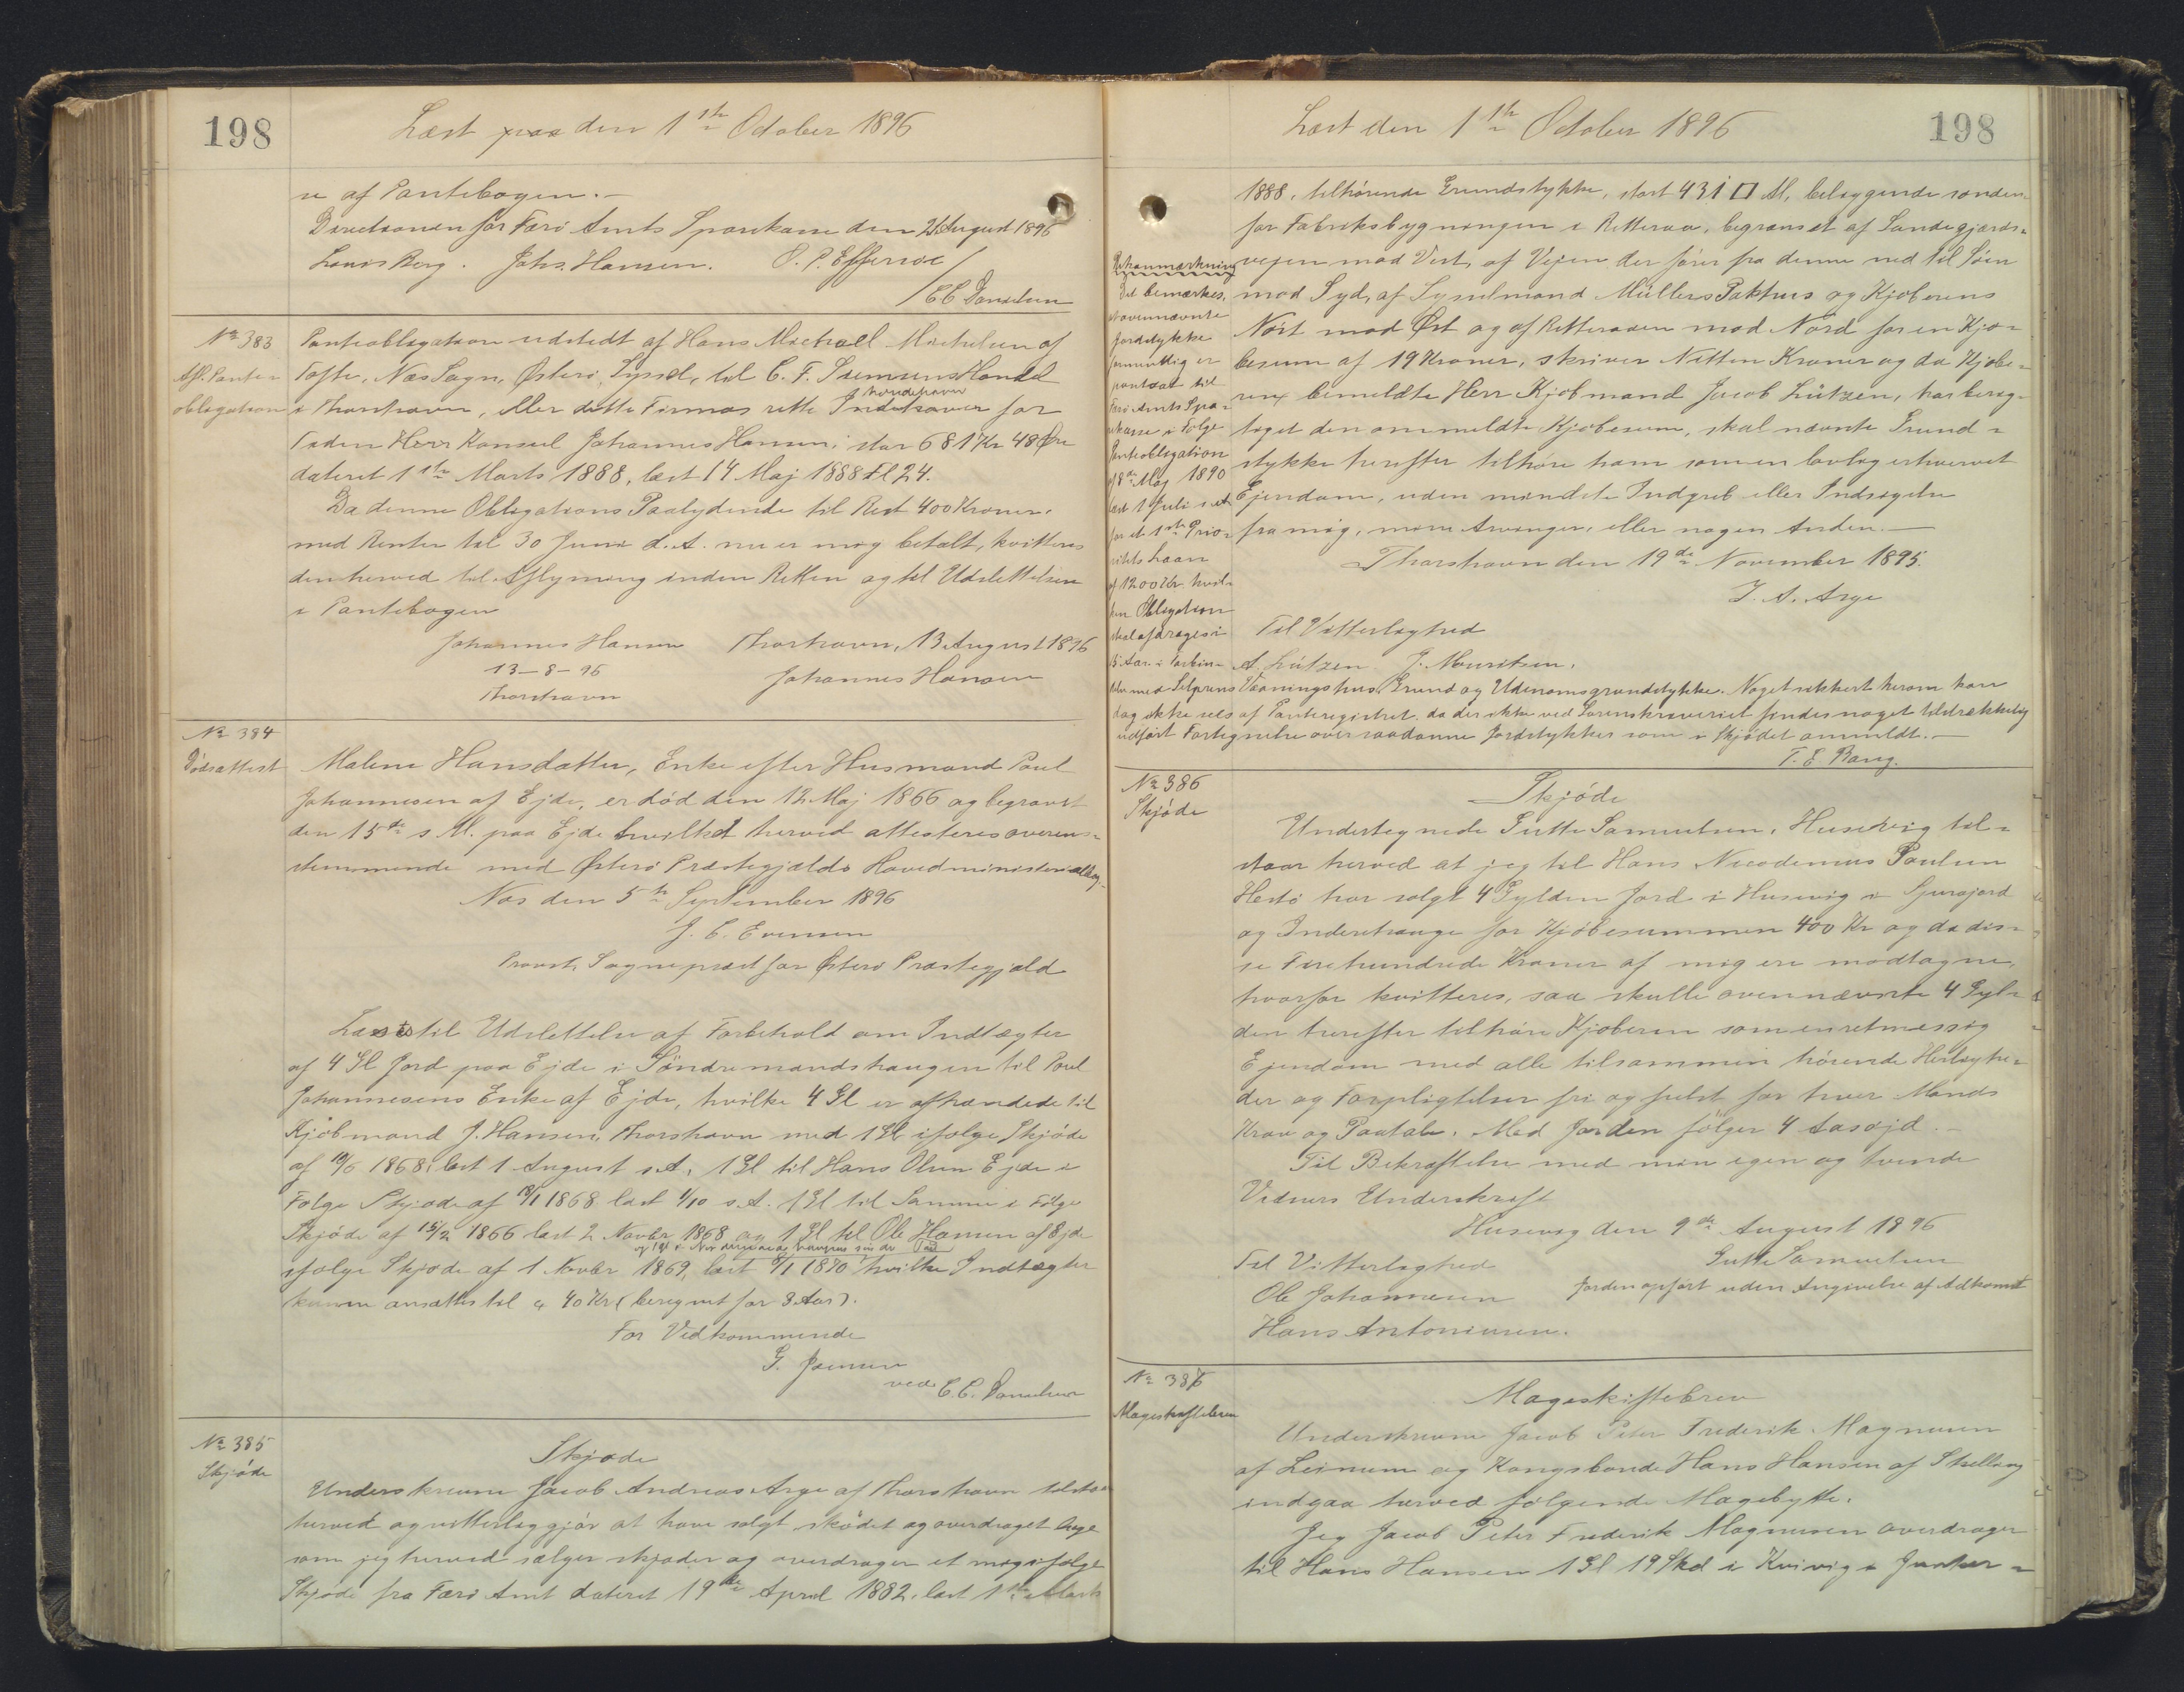 198
Læst paa den 1ste October 1896
re af Pantebogen.-
Directionen for Færø Amts Sparekasse den 21 August 1896
Louis Berg. Johs. Hansen. O. P. Effersøe
/C C Danielsen
No 383
Afl. Pante=
obligation
Panteobligation udstedt af Hans Michael Michelsen af
Tofte, Næs Sogn, Østerø Syssel, til C. F. Siemsens Handel
i Thorshavn, eller dette Firmas rette Indehaver for
Tiden Herr Konsul Johannes Hansen, stor 681 Kr 48 Øre
dateret 1ste Marts 1888, læst 14 Maj 1888 Fl 24.
Da denne Obligations Paalydende til Rest 400 Kroner.
med Renter til 30 Juni d. A. nu er mig betalt, kvitteres
den herved til Aflysning inden Retten og til Udslettelse
i Pantebogen
Johannes Hansen Thorshavn, 13 August 1896
13-8-96 Johannes Hansen
Thorshavn
No 384
Dødsattest
Malene Hansdatter, Enke efter Husmand Poul
Johannesen af Ejde, er død den 12 Maj 1866 og begravet
den 15de s. M. paa Ejde hvilket herved attesteres overens=
stemmende med Østerø Præstegjælds Hovedministerialbog.
Næs den 5te September 1896
J. C. Evensen
Provst, Sognepræst for Østerø Præstegjæld
Læses til Udslettelse af Forbehold om Indtægter
af 4 Gl Jord paa Ejde i Søndremandshaugen til Poul
Johannesens Enke af Ejde, hvilke 4 Gl er afhændede til
Kjøbmand J. Hansen, Thorshavn med 1 Gl ifølge Skjøde
af 10/6 1868, læst 1 August s. A., 1 Gl til Hans Olsen Ejde i
Følge Skjøde af 1868 læst 1/10 s. A. 1 Gl til Samme i Følge
Skjøde af 15/2 1866 læst 2 Novbr 1868 og 1 Gl til Ole Hansen af Ejde
ifølge Skjøde af 1 Novbr 1869, læst 1/1 1870 hvilke Indtægter
kunne ansættes til a 40 Kr (beregnet for 3 Aar).
For Vedkommende
G. Jensen
ved C. C. Danielsen
No 385
Skjøde
Skjøde
Underskrevne Jacob Andreas Arge af Thorshavn tilstaar
herved og vitterliggjør at have solgt skødet og overdraget lige
som jeg herved sælger skjøder og overdrager et mig ifølge
Skjøde fra Færø Amt dateret 19de April 1882, læst 1ste Marts
Læst den 1ste October 1896
198
1888, tilhørende Grundstykke, stort 431 □ Al, beliggende sønden
for Fabriksbygningen i Ritteraa, begrænset af Sandegjærds=
vejen mod Vest, af Vejen der fører fra denne ned til Søen
mod Syd, af Sysselmand Müllers Pakhus og Kjøberens
Nøst mod Øst og af Ritteraaen mod Nord for en Kjø=
besum af 19 Kroner, skriver Nitten Kroner og da Kjøbe=
ren bemeldte Herr Kjøbmand Jacob Lützen, har berig=
tiget den ommeldte Kjøbesum, skal nævnte Grund=
stykke herefter tilhøre ham som en lovlig erhvervet
Ejendom, uden mindste Indgreb eller Indsigelse
fra mig, mine Arvinger, eller nogen Anden.
Thorshavn den 19de November 1895.
J. A. Arge
Til Vitterlighed
A. Lützen J. Mouritsen.
Retsanmærkning
Det bemærkes,
at ovennævnte
Jordstykke
formentlig er
pantsat til
Færø Amts Spa=
rekasse i Følge
Panteobligation
af 8de Maj 1890
læst 1 Juli s. A.
for et 1ste Prio=
ritets Laan
af 1200 Kr hvil=
ken Obligation
skal afdrages i
15 Aar i Forbin=
delse med Selgerens Vaaningshus, Grund og Udenomsgrundstykke. Noget sikkert herom kan
dog ikke sees af Panteregistret, da der ikke ved Sorenskriveriet findes noget tilstrækkelig
udført Fortegnelse over saadanne Jordstykker som i Skjødet ommeldt.-
T. E. Bang.
No 386
Skjøde
Skjøde
Undertegnede Gutte Samuelsen, Husevig til=
staar herved at jeg til Hans Nicodemus Poulsen
Hestø har solgt 4 Gylden Jord i Husevig i Gjurajord
og Inderstrange for Kjøbesummen 400 Kr og da dis=
se Firehundrede Kroner af mig ere modtagne,
hvorfor kvitteres, saa skulle ovennævnte 4 Gyl=
den herefter tilhøre Kjøberen som en retmessig
Ejendom med alle tilsammen hørende Herlighe=
der og Forpligtelser fri og frelst for hver Mands
Krav og Paatale. Med Jorden følger 4 Aasøjd.-
Til Bekræftelse med min egen og tvende
Vidners Underskrift
Husevig den 9de August 1896
Til Vitterlighed Gutte Samuelsen
Ole Johannesen Jorden opført uden Angivelse af Adkomst
Hans Antoniusen.
No 387
Mageskiftebrev
Mageskiftebrev
Underskrevne Jacob Peter Frederik Magnusen
af Leinum og Kongsbonde Hans Hansen af Skelling
indgaa herved følgende Magebytte.
Jeg Jacob Peter Frederik Magnusen overdrager
til Hans Hansen 1 Gl 19 Skd i Kvivig i Junker=